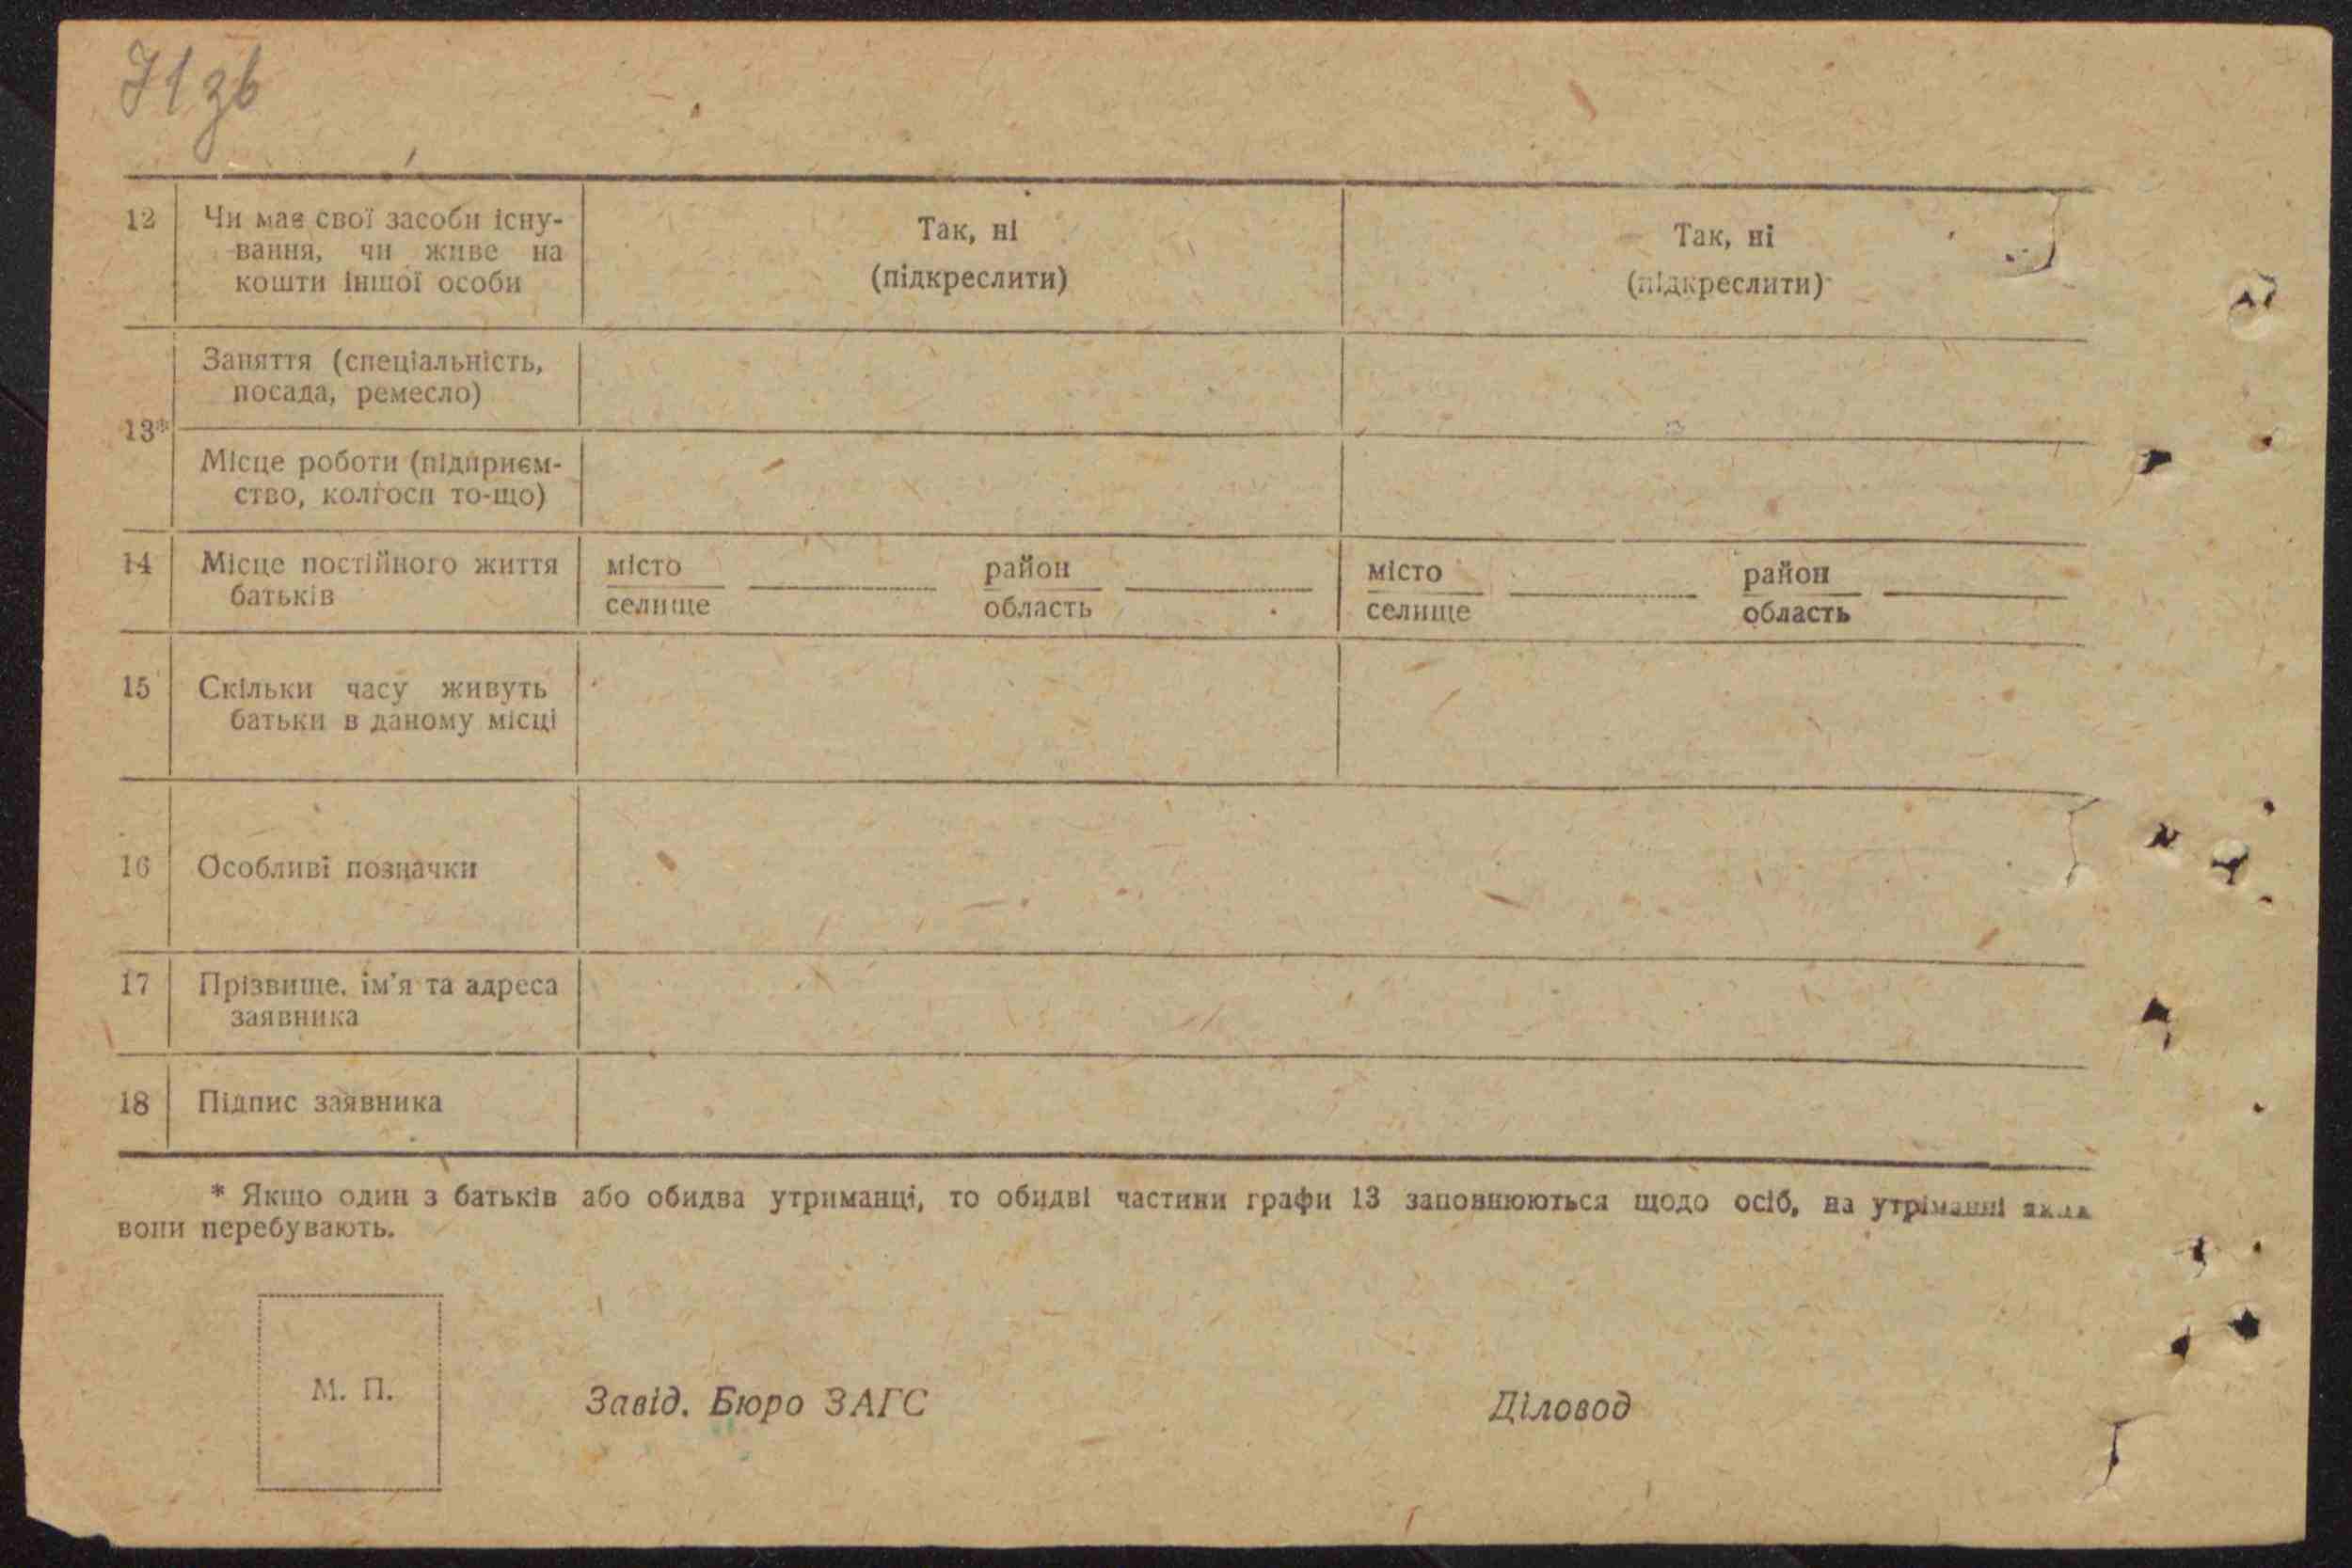 71 зв
12 Чи має свої засоби існу- Так, ні Так, ні
вання, чи живе на (підкреслити) (підкреслити)
кошти іншої особи
13* Заняття (спеціальність,
посада, ремесло)
Місце роботи (підприєм-
ство, колгосп то-що)
14 Місце постійного життя місто район місто район
батьків селище область селище область
15 Скільки часу живуть
батьки в даному місці
16 Особливі позначки
17 Прізвище, ім'я та адреса
заявника
18 Підпис заявника
* Якщо один з батьків або обидва утриманці, то обидві частини графи 13 заповнюються щодо осіб, на утріманні
вони перебувають.
М. П. Завід. Бюро ЗАГС Діловод